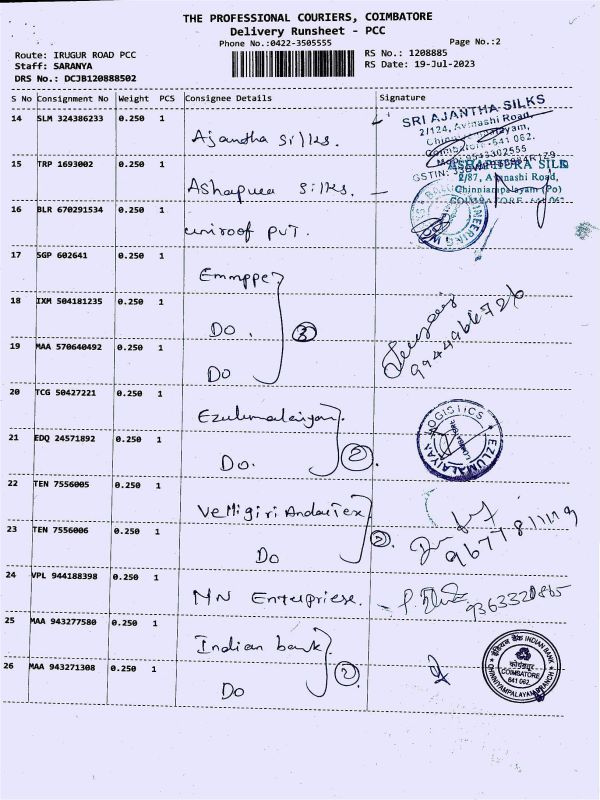 THE PROFESSIONAL COURIERS, COIMBATORE
Delivery Runsheet - PCC
Phone No.:0422-3505555
Page No.:2
Route: IRUGUR ROAD PCC
RS No.: 1208885
Staff: SARANYA
RS Date: 19-Jul-2023
DRS No.: DCJB120888502
S No Consignment No Weight PCS Consignee Details Signature
14 SLM 324386233 0.250 1
Ajantha silks.
SRI AJANTHA SILKS
2/124, Avinashi Road,
Chinniyampalayam,
Coimbatore - 641 062.
15 TRP 1693002 0.250 1
Ashapura silks.
ASHAPURA SILK
2/87, Avinashi Road,
Chinniampalayam (Po)
COIMBATORE - 641 062
16 BLR 670291534 0.250 1
uniroof PVT.
17 SGP 602641 0.250 1
Emmppe
18 IXM 504181235 0.250 1
Do. 3
9944966726
19 MAA 570640492 0.250 1
Do
20 TCG 50427221 0.250 1
Ezulumalaiyan.
EZLUMALAIYAN LOGISTICS
COIMBATORE
21 EDQ 24571892 0.250 1
Do. 2.
22 TEN 7556005 0.250 1
Velligiri Andav Tex
9677811119
23 TEN 7556006 0.250 1
Do
2.
24 VPL 944188398 0.250 1
MN Enterpriese.
9363320865
25 MAA 943277580 0.250 1
Indian bank
26 MAA 943271308 0.250 1
Do
2
इंडियन बैंक INDIAN BANK
कोयंबतूर
COIMBATORE
641 062
CHINNIYAMPALAYAM BRANCH